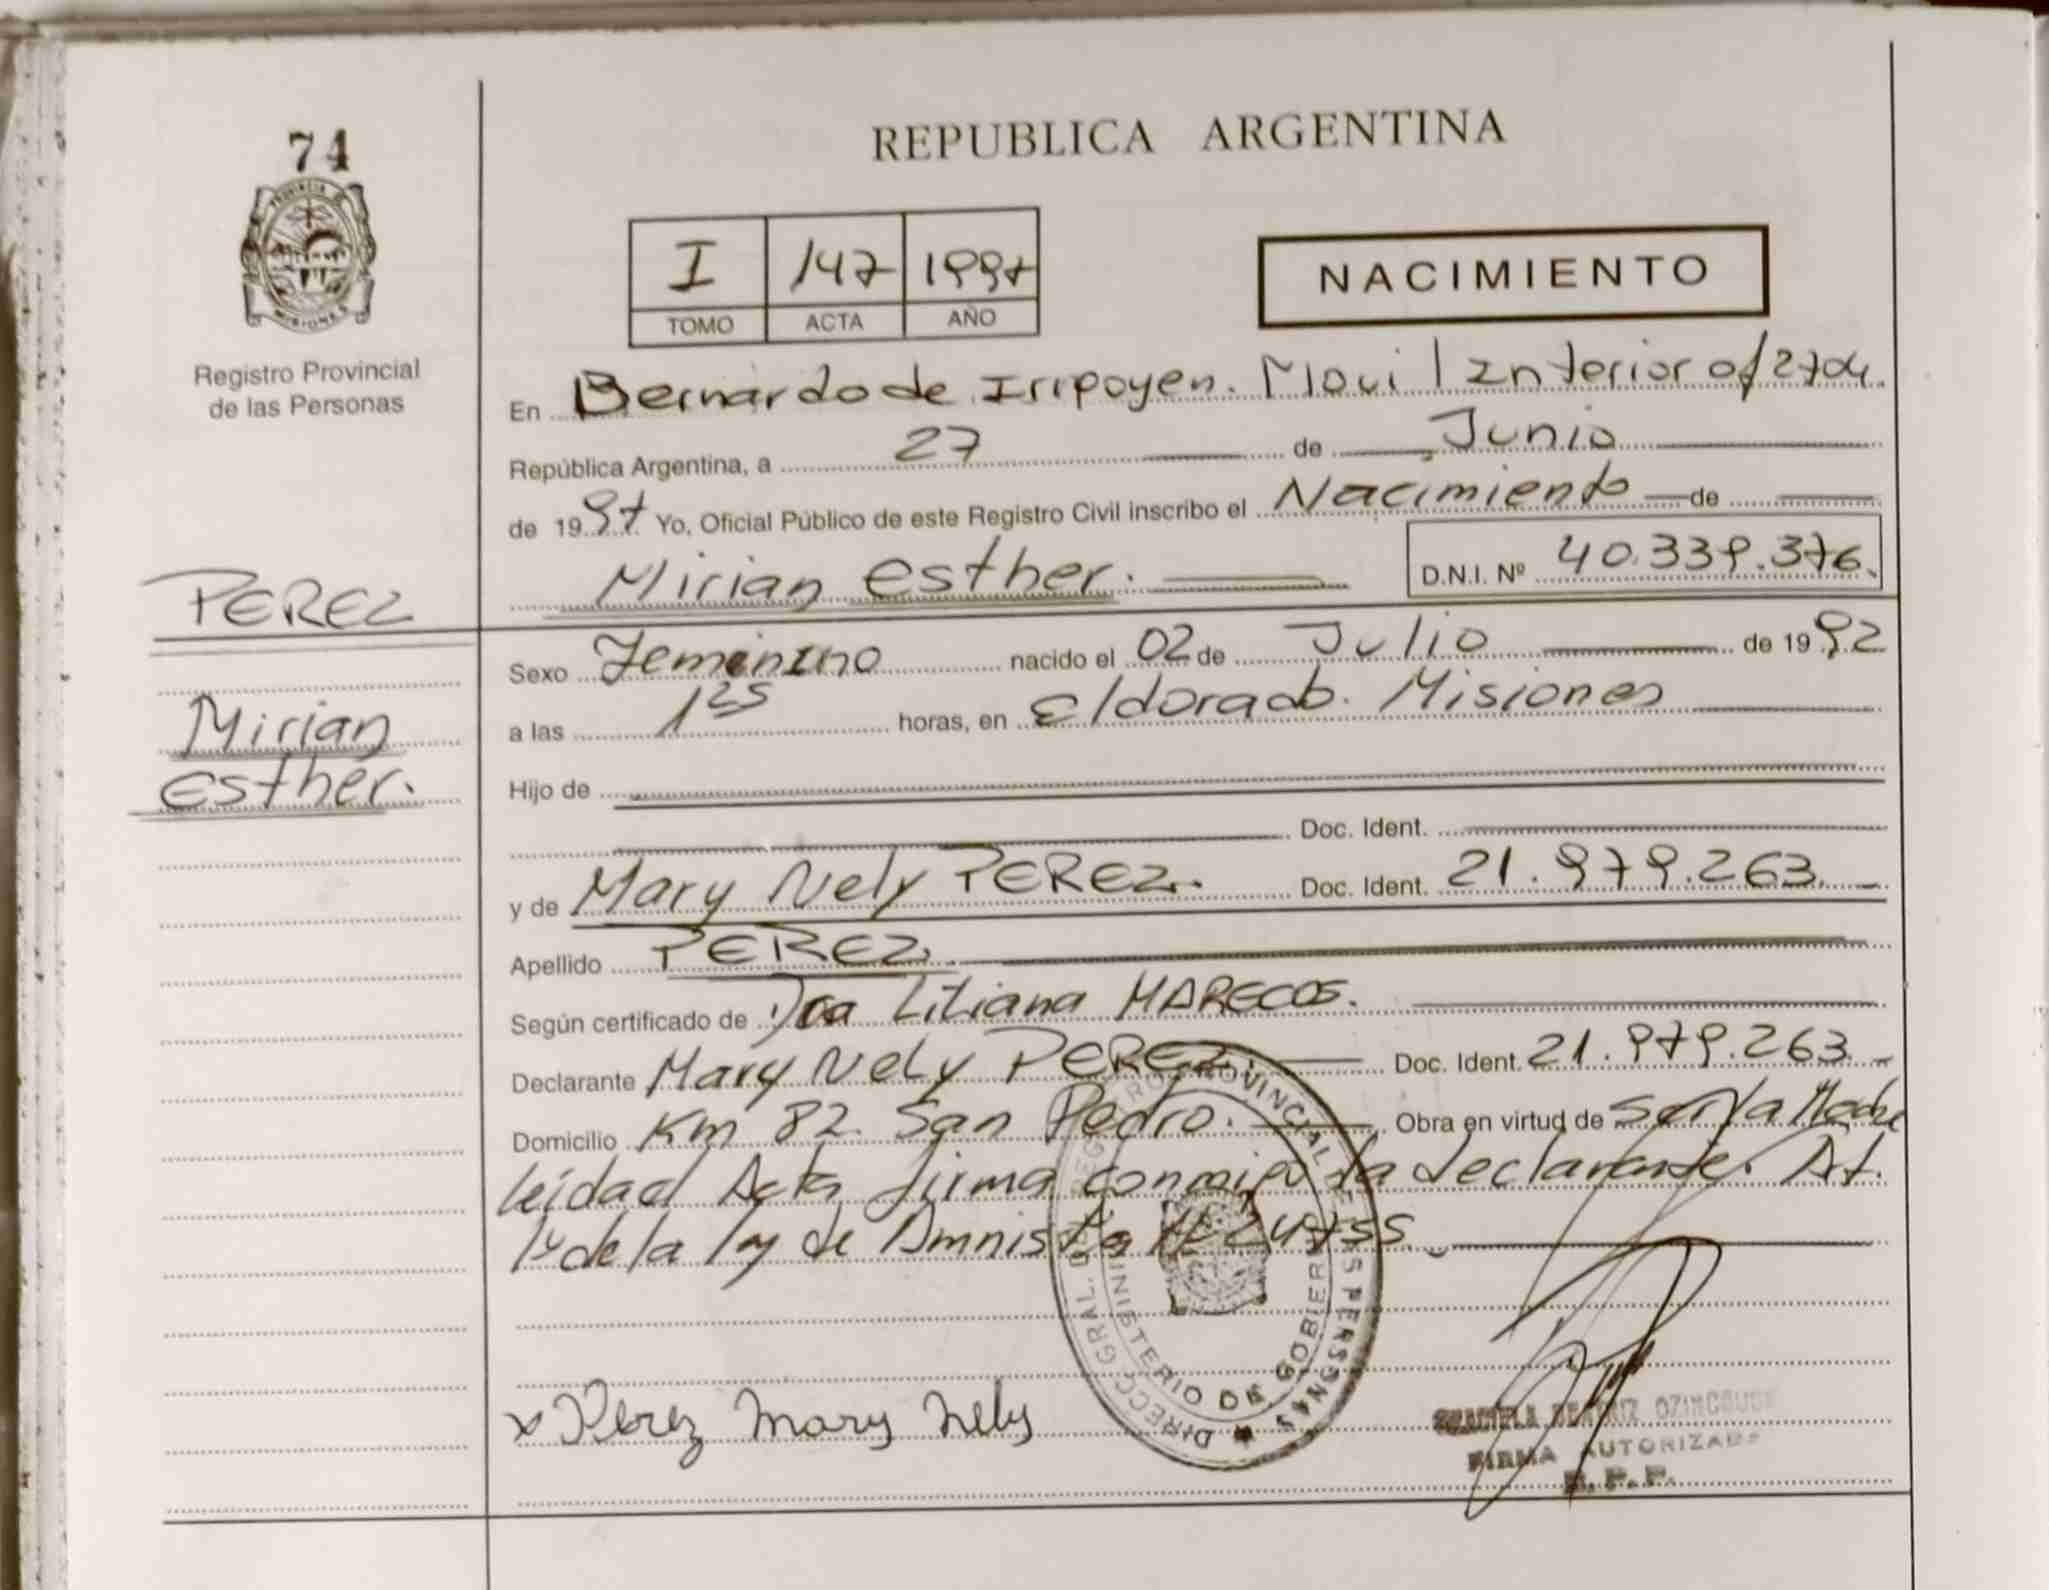 74
PROVINCIA DE
MISIONES
Registro Provincial
de las Personas
PEREZ
Mirian
Esther.
REPUBLICA ARGENTINA
I 147 1997
TOMO ACTA AÑO
NACIMIENTO
En Bernardo de Iripoyen. Movil Interior of 2704.
República Argentina, a 27 de Junio
de 1997 Yo, Oficial Público de este Registro Civil inscribo el Nacimiento de
Mirian Esther. D.N.I. Nº 40.339.376.
Sexo Femenino nacido el 02 de Julio de 1992
a las 1 25 horas, en Eldorado. Misiones
Hijo de
Doc. Ident.
y de Mary Nely PEREZ. Doc. Ident. 21.979.263.
Apellido PEREZ.
Según certificado de Dra Liliana MARECOS.
Declarante Mary Nely PEREZ. Doc. Ident. 21.979.263
Domicilio Km 82 San Pedro. Obra en virtud de ser la Madre
leída el Acta firma conmigo la declarante. At.
de la ley de Amnistía
x Perez Mary Nely
DIRECC GRAL. DEL REGISTRO PROVINCIAL DE LAS PERSONAS
MINISTERIO DE GOBIERNO
GRACIELA BEATRIZ
FIRMA AUTORIZADA
R. P. P.